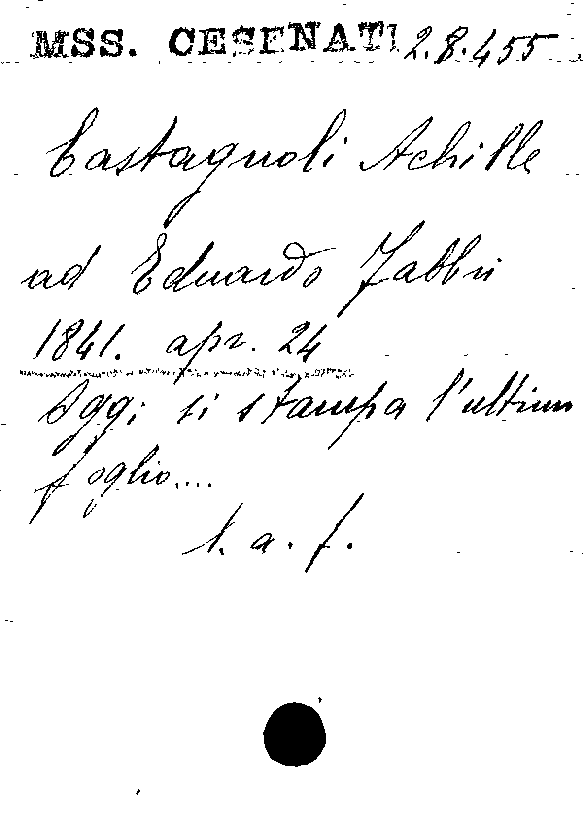 MSS. CESENATI 2.8.455
Castagnoli Achille
ad Eduardo Fabbri
1841. apr. 24
Oggi si stampa l'ultimo
foglio....
l. a. f.